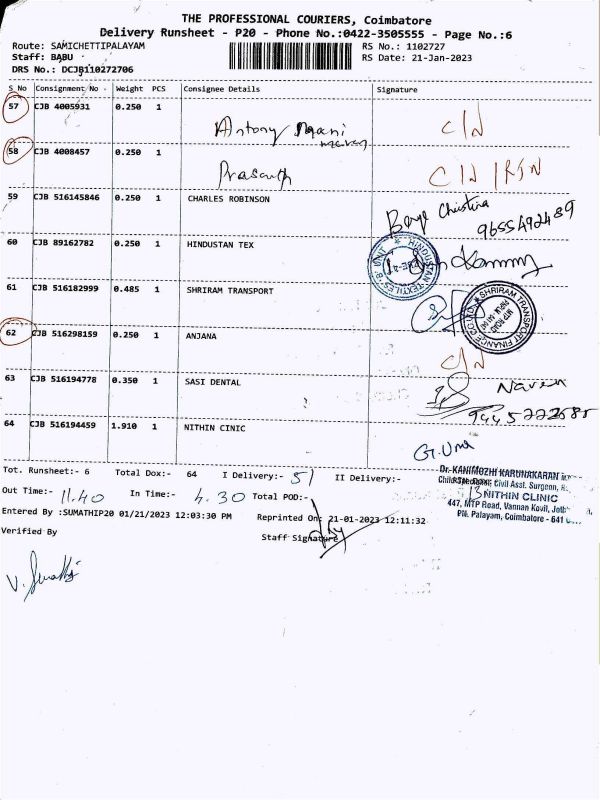 THE PROFESSIONAL COURIERS, Coimbatore
Delivery Runsheet - P20 - Phone No.:0422-3505555 - Page No.:6
Route: SAMICHETTIPALAYAM RS No.: 1102727
Staff: BABU RS Date: 21-Jan-2023
DRS No.: DCJB110272706
S No Consignment No Weight PCS Consignee Details Signature
57 CJB 4005931 0.250 1
Antony Mani C/N
58 CJB 4008457 0.250 1
Prasanth C/N /RTN
59 CJB 516145846 0.250 1 CHARLES ROBINSON
Christina
9655492489
60 CJB 89162782 0.250 1 HINDUSTAN TEX
HINDUSTAN TEXTYLES-B-UNIT
61 CJB 516182999 0.485 1 SHRIRAM TRANSPORT
SHRIRAM TRANSPORT FINANCE CO
MTP ROAD
62 CJB 516298159 0.250 1 ANJANA
C/N
63 CJB 516194778 0.350 1 SASI DENTAL
Naveen
64 CJB 516194459 1.910 1 NITHIN CINIC
G.Uma
Tot. Runsheet:- 6 Total Dox:- 64 I Delivery:- 51 II Delivery:-
Dr. KANIMOZHI KARUNAKARAN
Civil Asst. Surgeon,
NITHIN CLINIC
447, MTP Road, Vannan Kovil,
PN. Palayam, Coimbatore - 641
Out Time:- 11.40 In Time:- 4.30 Total POD:-
Entered By :SUMATHIP20 01/21/2023 12:03:30 PM Reprinted On: 21-01-2023 12:11:32
Verified By Staff Signature
V. Sumathi